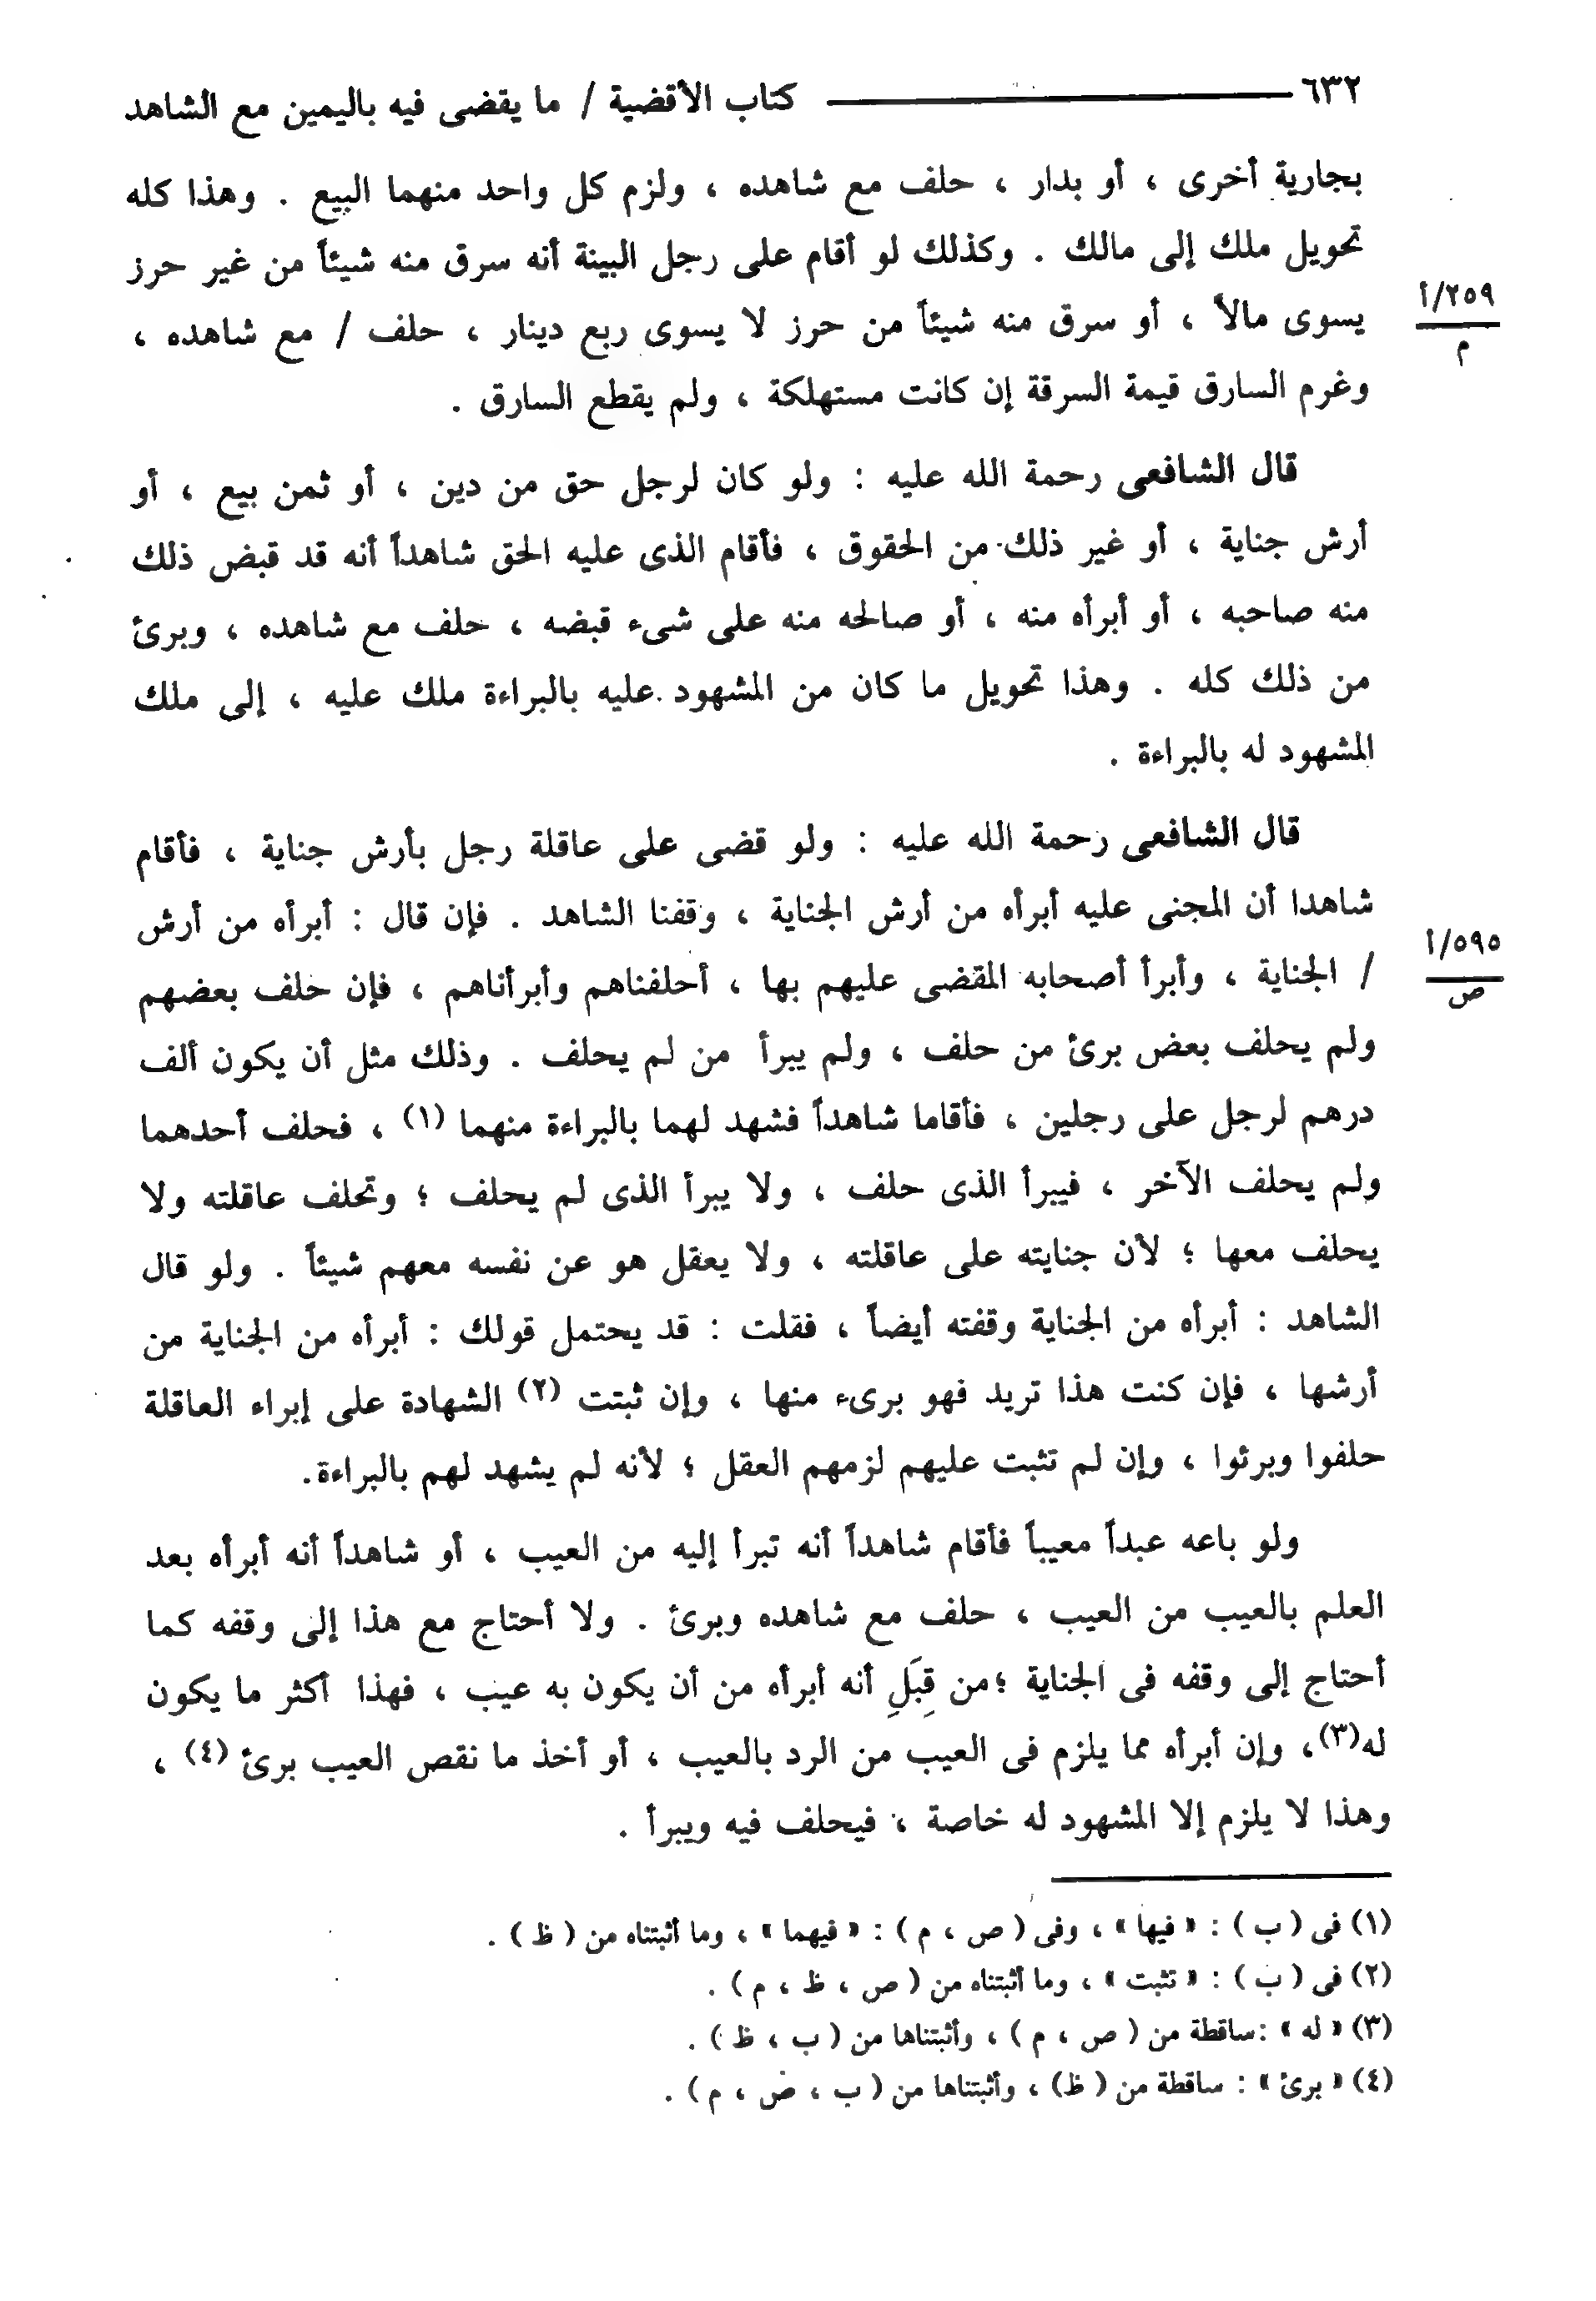 ٦٣٢ ــــــــــــــــــــ كتاب الأقضية / ما يقضى فيه باليمين مع الشاهد
بجارية أخرى ، أو بدار ، حلف مع شاهده ، ولزم كل واحد منهما البيع . وهذا كله
تحويل ملك إلى مالك . وكذلك لو أقام على رجل البينة أنه سرق منه شيئاً من غير حرز
٢٥٩/أ
م
يسوى مالاً ، أو سرق منه شيئاً من حرز لا يسوى ربع دينار ، حلف / مع شاهده ،
وغرم السارق قيمة السرقة إن كانت مستهلكة ، ولم يقطع السارق .
قال الشافعى رحمة الله عليه : ولو كان لرجل حق من دين ، أو ثمن بيع ، أو
أرش جناية ، أو غير ذلك من الحقوق ، فأقام الذى عليه الحق شاهداً أنه قد قبض ذلك
منه صاحبه ، أو أبرأه منه ، أو صالحه منه على شىء قبضه ، حلف مع شاهده ، وبرئ
من ذلك كله . وهذا تحويل ما كان من المشهود عليه بالبراءة ملك عليه ، إلى ملك
المشهود له بالبراءة .
قال الشافعى رحمة الله عليه : ولو قضى على عاقلة رجل بأرش جناية ، فأقام
شاهدا أن المجنى عليه أبرأه من أرش الجناية ، وقفنا الشاهد . فإن قال : أبرأه من أرش
٥٩٥/أ
ص
/ الجناية ، وأبرأ أصحابه المقضى عليهم بها ، أحلفناهم وأبرأناهم ، فإن حلف بعضهم
ولم يحلف بعض برئ من حلف ، ولم يبرأ من لم يحلف . وذلك مثل أن يكون ألف
درهم لرجل على رجلين ، فأقاما شاهداً فشهد لهما بالبراءة منهما (١) ، فحلف أحدهما
ولم يحلف الآخر ، فيبرأ الذى حلف ، ولا يبرأ الذى لم يحلف ؛ وتحلف عاقلته ولا
يحلف معها ؛ لأن جنايته على عاقلته ، ولا يعقل هو عن نفسه معهم شيئاً . ولو قال
الشاهد : أبرأه من الجناية وقفته أيضاً ، فقلت : قد يحتمل قولك : أبرأه من الجناية من
أرشها ، فإن كنت هذا تريد فهو برىء منها ، وإن ثبتت (٢) الشهادة على إبراء العاقلة
حلفوا وبرئوا ، وإن لم تثبت عليهم لزمهم العقل ؛ لأنه لم يشهد لهم بالبراءة.
ولو باعه عبداً معيباً فأقام شاهداً أنه تبرأ إليه من العيب ، أو شاهداً أنه أبرأه بعد
العلم بالعيب من العيب ، حلف مع شاهده وبرئ . ولا أحتاج مع هذا إلى وقفه كما
أحتاج إلى وقفه فى الجناية ؛من قِبَلِ أنه أبرأه من أن يكون به عيب ، فهذا أكثر ما يكون
له(٣)، وإن أبرأه مما يلزم فى العيب من الرد بالعيب ، أو أخذ ما نقص العيب برئ (٤) ،
وهذا لا يلزم إلا المشهود له خاصة ، فيحلف فيه ويبرأ .
(١) فى ( ب ) : « فيها » ، وفى ( ص ، م ) : « فيهما » ، وما أثبتناه من ( ظ ) .
(٢) فى ( ب ) : « تثبت » ، وما أثبتناه من ( ص ، ظ ، م ) .
(٣) « له » :ساقطة من ( ص ، م ) ، وأثبتناها من ( ب ، ظ ) .
(٤) « برئ » : ساقطة من ( ظ) ، وأثبتناها من ( ب ، ص ، م ) .